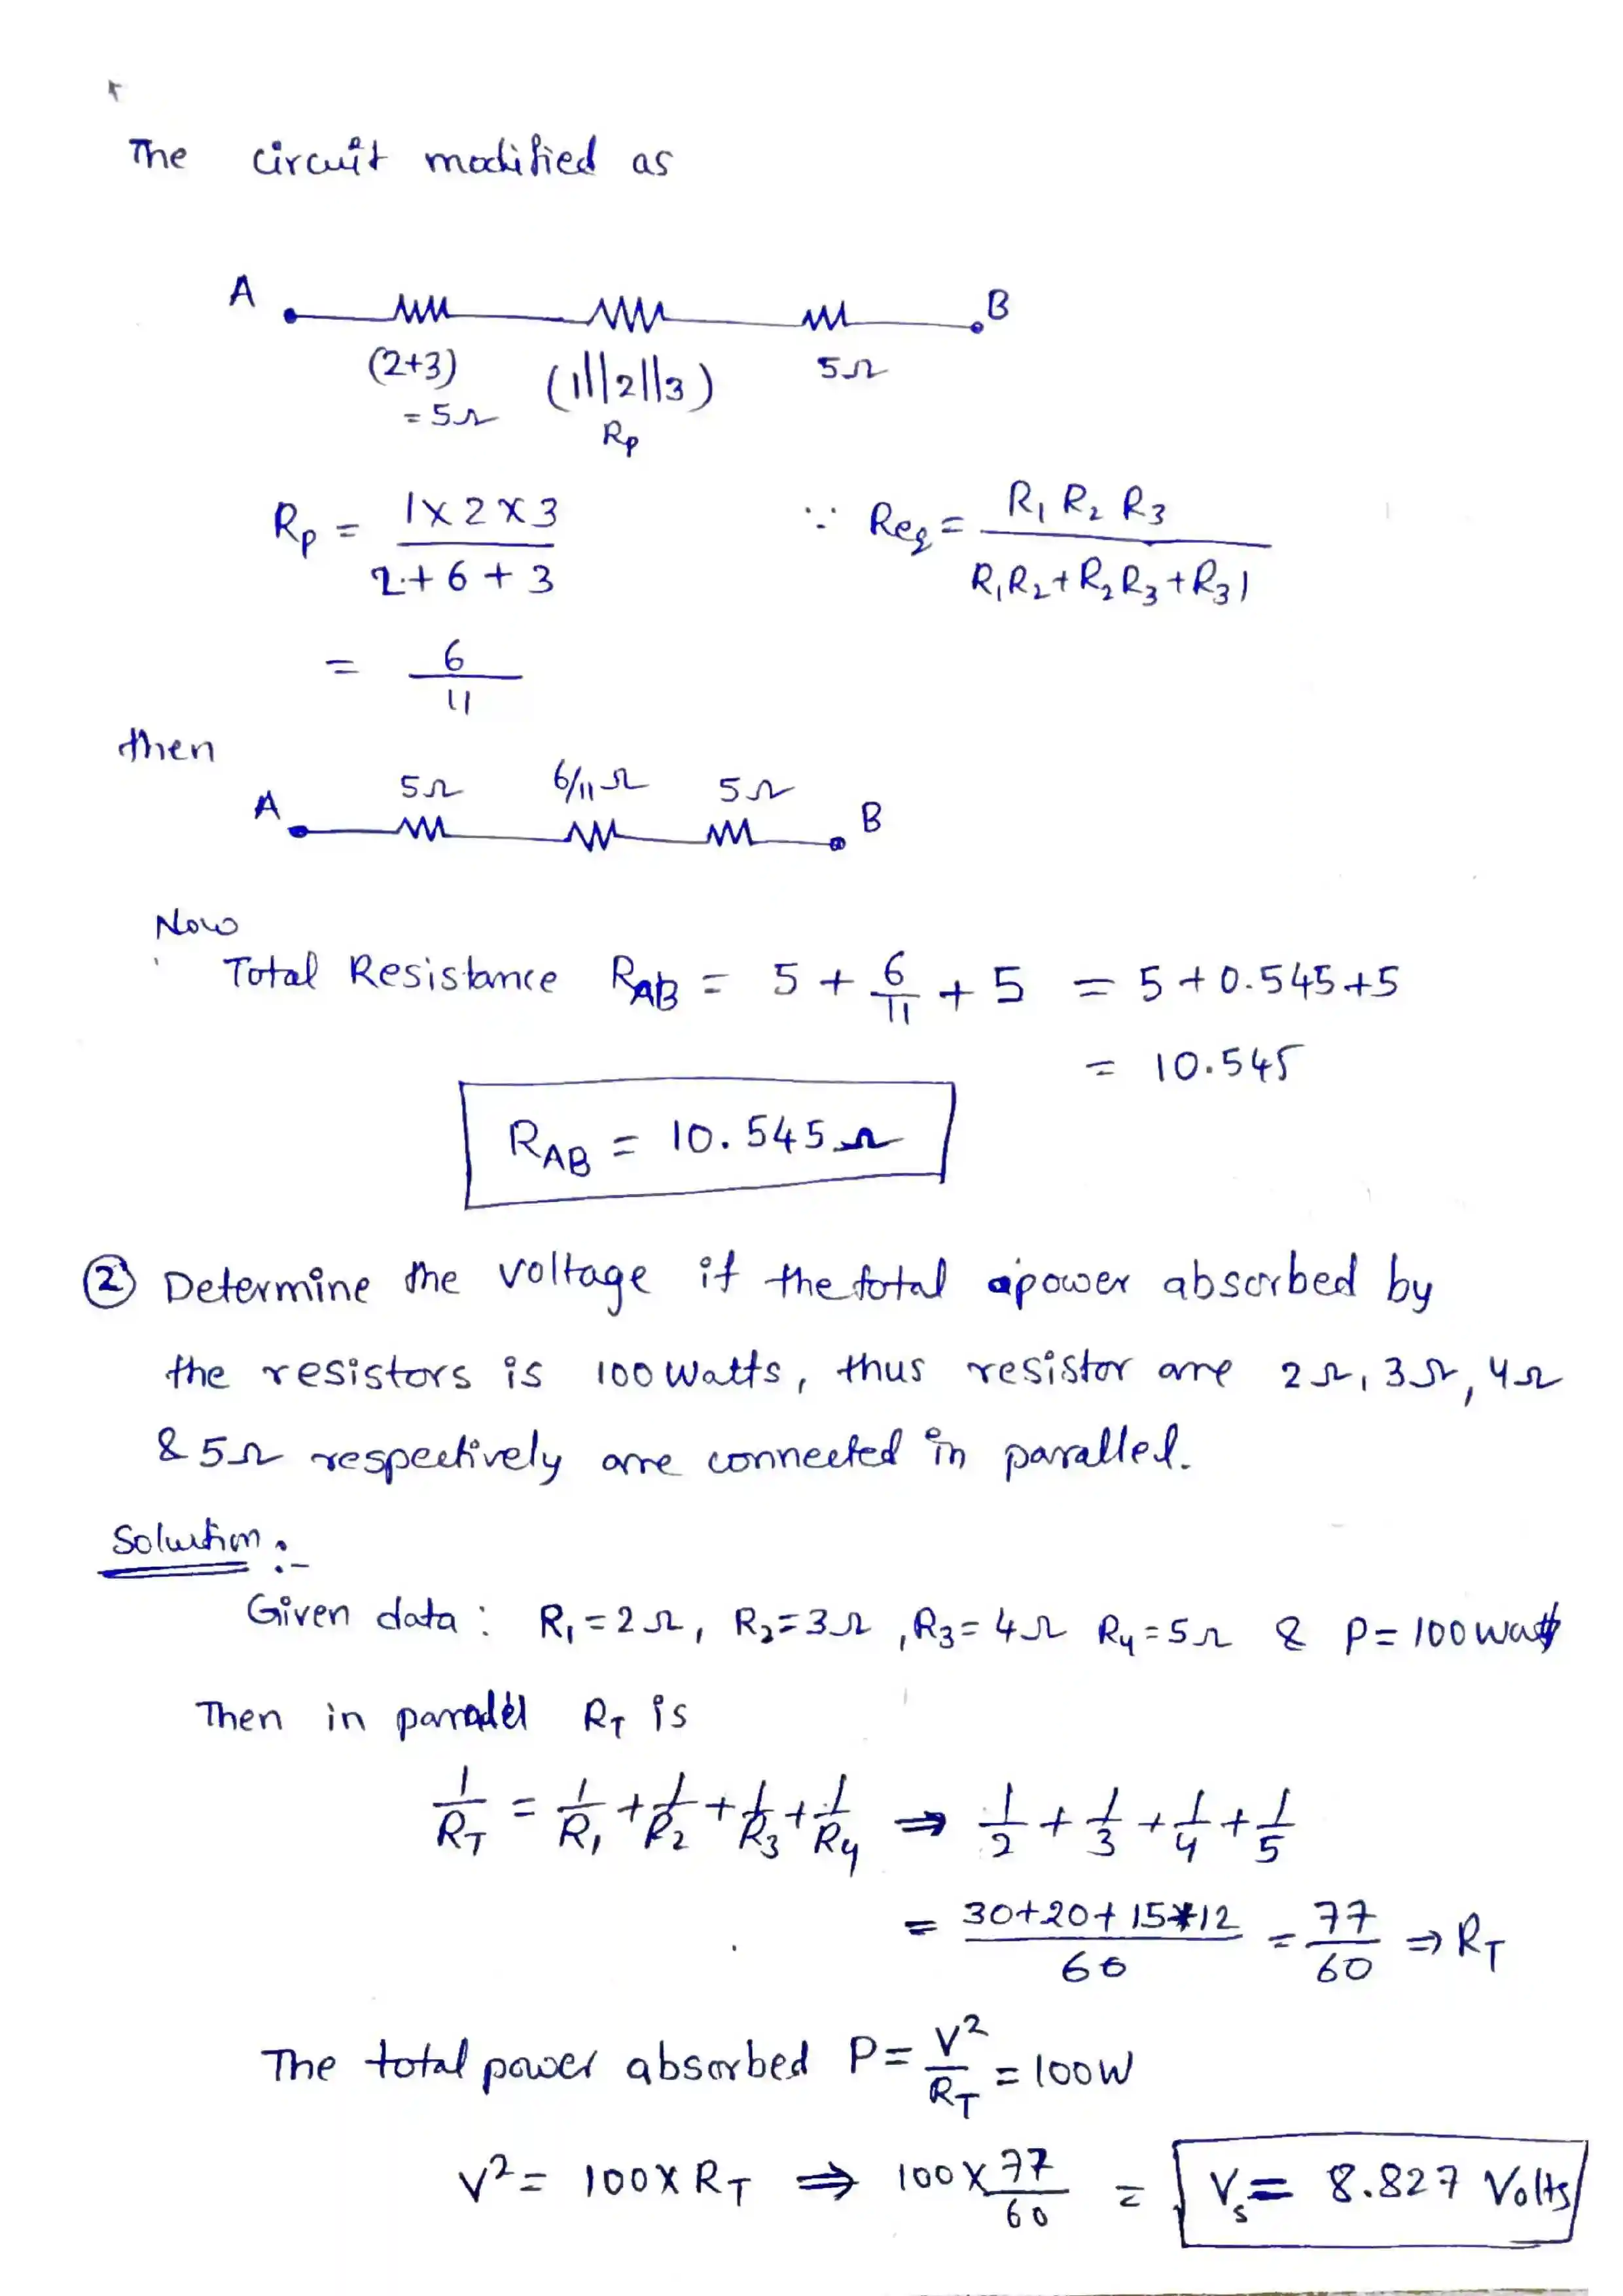 The circuit modified as
A B
(2+3) (1||2||3) 5Ω
= 5Ω Rp
Rp = 1×2×3 / 2+6+3 ∵ Req = R1 R2 R3 / R1R2+R2R3+R31
= 6/11
then
A 5Ω 6/11Ω 5Ω B
Now
Total Resistance RAB = 5 + 6/11 + 5 = 5+0.545+5
= 10.545
RAB = 10.545Ω
② Determine the voltage if the total power absorbed by
the resistors is 100 Watts, thus resistor are 2Ω, 3Ω, 4Ω
& 5Ω respectively are connected in parallel.
Solution :-
Given data : R1 = 2Ω, R2 = 3Ω, R3 = 4Ω R4 = 5Ω & P = 100 watt
Then in parallel RT is
1/RT = 1/R1 + 1/R2 + 1/R3 + 1/R4 ⇒ 1/2 + 1/3 + 1/4 + 1/5
= 30+20+15+12 / 60 = 77/60 ⇒ RT
The total power absorbed P = V²/RT = 100W
V² = 100 × RT ⇒ 100 × 77/60 = Vs = 8.827 Volts